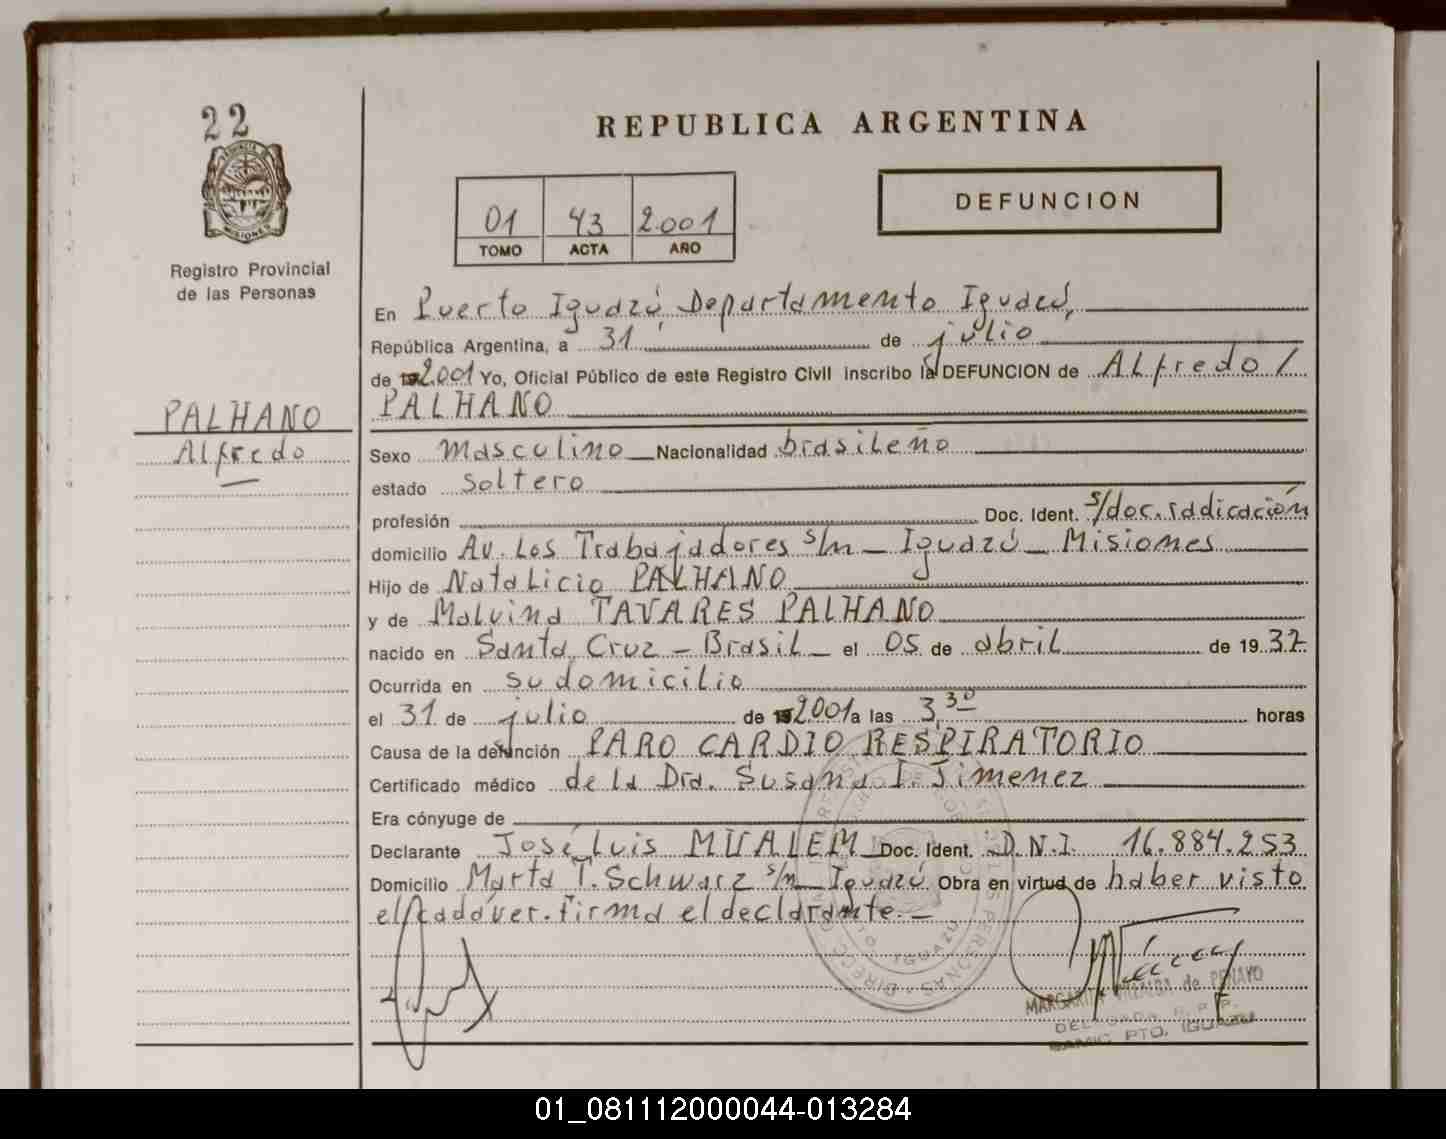 22
PROVINCIA DE
MISIONES
Registro Provincial
de las Personas
REPUBLICA ARGENTINA
01 43 2.001
TOMO ACTA AÑO
DEFUNCION
En Puerto Iguazú, Departamento Iguazú,
República Argentina, a 31 de julio
de 2.001 Yo, Oficial Público de este Registro Civil inscribo la DEFUNCION de ALfredo /
PALHANO
PALHANO
ALfredo
Sexo masculino Nacionalidad brasileño
estado soltero
profesión Doc. Ident. s/doc. radicación
domicilio Av. Los Trabajadores s/n - Iguazú - Misiones
Hijo de NataLicio PALHANO
y de Malvina TAVARES PALHANO
nacido en Santa Cruz - Brasil - el 05 de abril de 1937
Ocurrida en su domicilio
el 31 de julio de 2.001 a las 3,30 horas
Causa de la defunción PARO CARDIO RESPIRATORIO
Certificado médico de la Dra. Susana I. Jimenez
Era cónyuge de
Declarante José Luis Doc. Ident. D.N.I. 16.884.253
Domicilio Marta T. Schwarz s/n - Iguazú Obra en virtud de haber visto
el cadáver. firma el declarante. -
PTO. IGUAZU
MARGARITA VILLALBA de PENAYO
DELEGADA R.P.P.
SAMIC PTO. IGUAZU
01_081112000044-013284